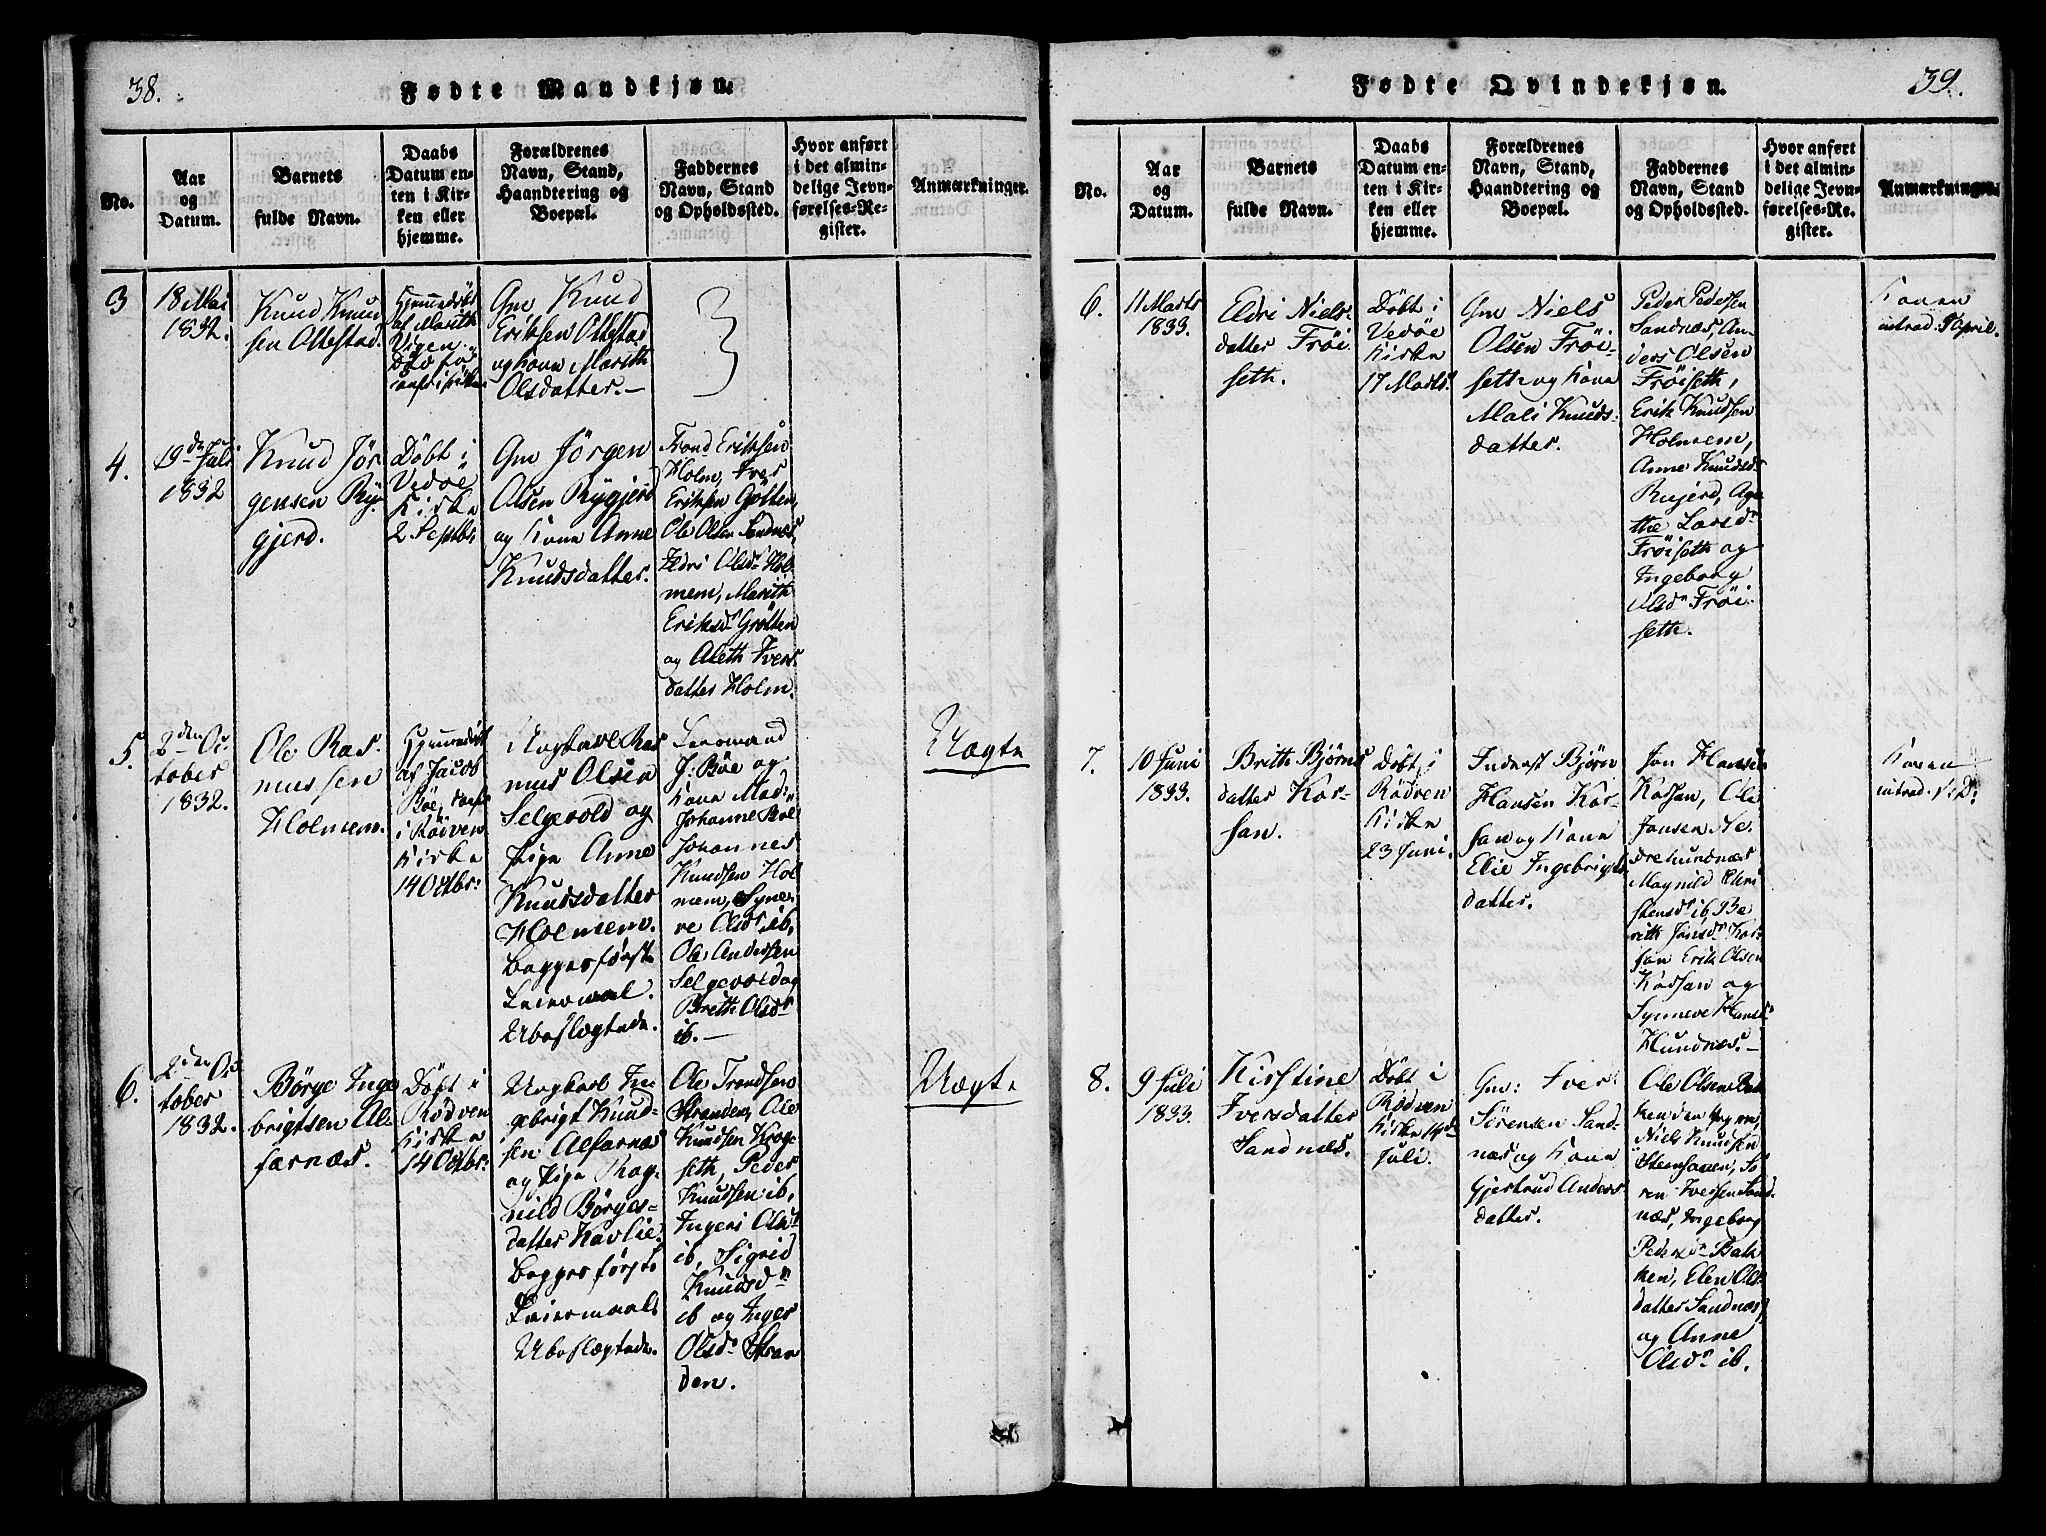 38.
Fødte Mandkjøn.
No.
Aar
og
Datum.
Barnets
fulde Navn.
Daabs
Datum en-
ten i Kir-
ken eller
hjemme.
Forældrenes
Navn, Stand,
Haandtering og
Boepæl.
Faddernes
Navn, Stand
og Opholdssted.
Hvor anført
i det almin-
delige Jevn-
førelses-Re-
gister.
Anmærkninger.
3
18 Mai
1832.
Knud Knud
sen Ottestad.
Hjemmedøbt
af Marith
Vigen.
Gm Knud
Eriksen Ottestad
og Kone Marith
Olsdatter.—
4.
19de Juli
1832
Knud Jør
gensen Ry-
gjerd.
Døbt i
Vedøe
Kirke
2 Septbr.
Gm Jørgen
Olsen Rygjerd
og Kone Anne
Knudsdatter.
Trond Eriksen
Holm, Iver
Eriksen Grøtten,
Ole Olsen Sandnæs,
Eldri Olsdr Hol-
mem, Marith
Eriksdr Grøtten
og Aleth Ivers
datter Holm.
5.
2den Oc
tober
1832.
Ole Ras-
mussen
Holmem.
Hjemmedøbt
af Jacob
Bøe,
i Rødven
Kirke
14 Octbr:
Ungkarl Ras
mus Olsen
Selgevold og
Pige Anne
Knudsdatter
Holmem.
Begges første
Leiermaal.
Ubeslægtede.
Leensmand
J: Bøe og
Kone Mad:
Johanne Bøe
Johannes
Knudsen Hol
mem, Syne-
ve Olsdr ib,
Ole Andersen
Selgevold og
Brith Olsdr
ib.—
Uægte
6.
2den Oc
tober
1832.
Børge Inge
brigtsen Al-
farnæs.
Døbt i
Rødven
Kirke
14 Octbr:
Ungkarl In
gebrigt Knud-
sen Alfarnæs
og Pige Rag-
nild Børges-
datter Kavlie.
Begges første
Leiermaal.
Ubeslægtede.
Ole Trondsen
Stranden, Ole
Knudsen Krog-
seth, Peder
Knudsen ib,
Ingeri Olsdr
ib, Sigrid
Knudsdr
ib og Inger
Olsdr Stran
den.
Uægte
39.
Fødte Qvindekjøn.
No.
Aar
og
Datum.
Barnets
fulde Navn.
Daabs
Datum en-
ten i Kir-
ken eller
hjemme.
Forældrenes
Navn, Stand,
Haandtering og
Boepæl.
Faddernes
Navn, Stand
og Opholdssted.
Hvor anført
i det almin-
delige Jevn-
førelses-Re-
gister.
Anmærkninger.
6.
11 Marts
1833.
Eldri Niels-
datter Frøi
seth.
Døbt i
Vedøe
Kirke
17 Marts.
Gm Niels
Olsen Frøi-
seth og Kone
Mali Knuds-
datter.
Peder Pedersen
Sandnæs, An-
ders Olsen
Frøiseth,
Erik Knudsen
Holmem,
Anne Knudsdr
Rujerd, Aga-
the Larsdr
Frøiseth og
Ingeborg
Olsdr Frøi-
seth.
Konen
introd. April.
7.
10 Juni
1833.
Brith Bjørns
datter Kor-
san.
Døbt i
Rødven
Kirke
23 Juni.
Inderst Bjørn
Hansen Kor-
san og Kone
Elie Ingebrigts
datter.
Jon Hansen
Korsan, Ole
Jonsen Ne-
drehundnæs
Magnild Chri
stensdr ib, Be
rith Jonsdr Kor-
san Erik Olsen
Korsan og
Synneve Hansdr
Hundnæs.—
Konen
introd.
8.
9 Juli
1833.
Kirstine
Iversdatter
Sandnæs.
Døbt i
Rødven
Kirke 14de
Juli.
Gm: Iver
Sørensen Sand-
næs og Kone
Gjertrud Anders
datter.
Ole Olsen Bak
ken den yngre,
Niels Knudsen
Steenhaven, Sö
ren Iversen Sand-
næs, Ingeborg
Pedersdr Bak
ken, Elen Ols-
datter Sandnæs,
og Anne
Olsdr ib.